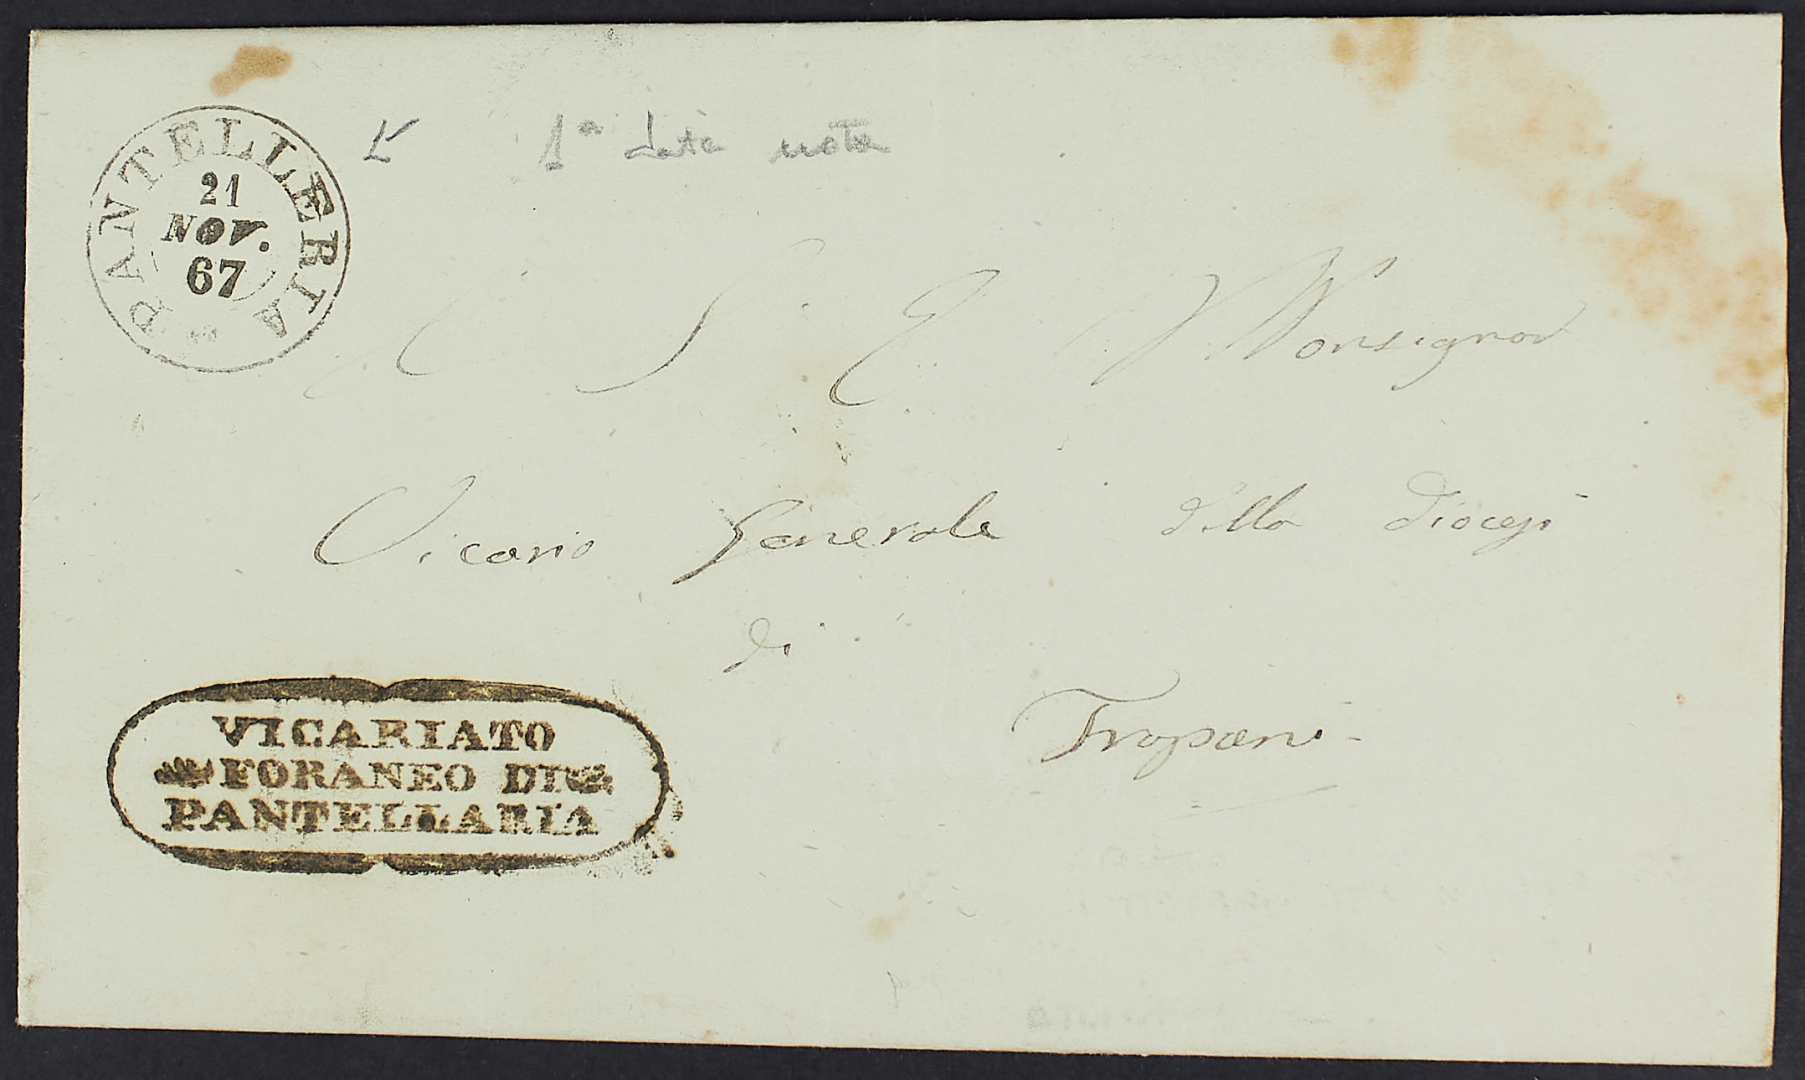 PANTELLERIA
21
NOV.
67
1ª data nota
A S E Monsignor
Vicario Generale della Diocesi
di
Trapani
VICARIATO
FORANEO DI
PANTELLARIA